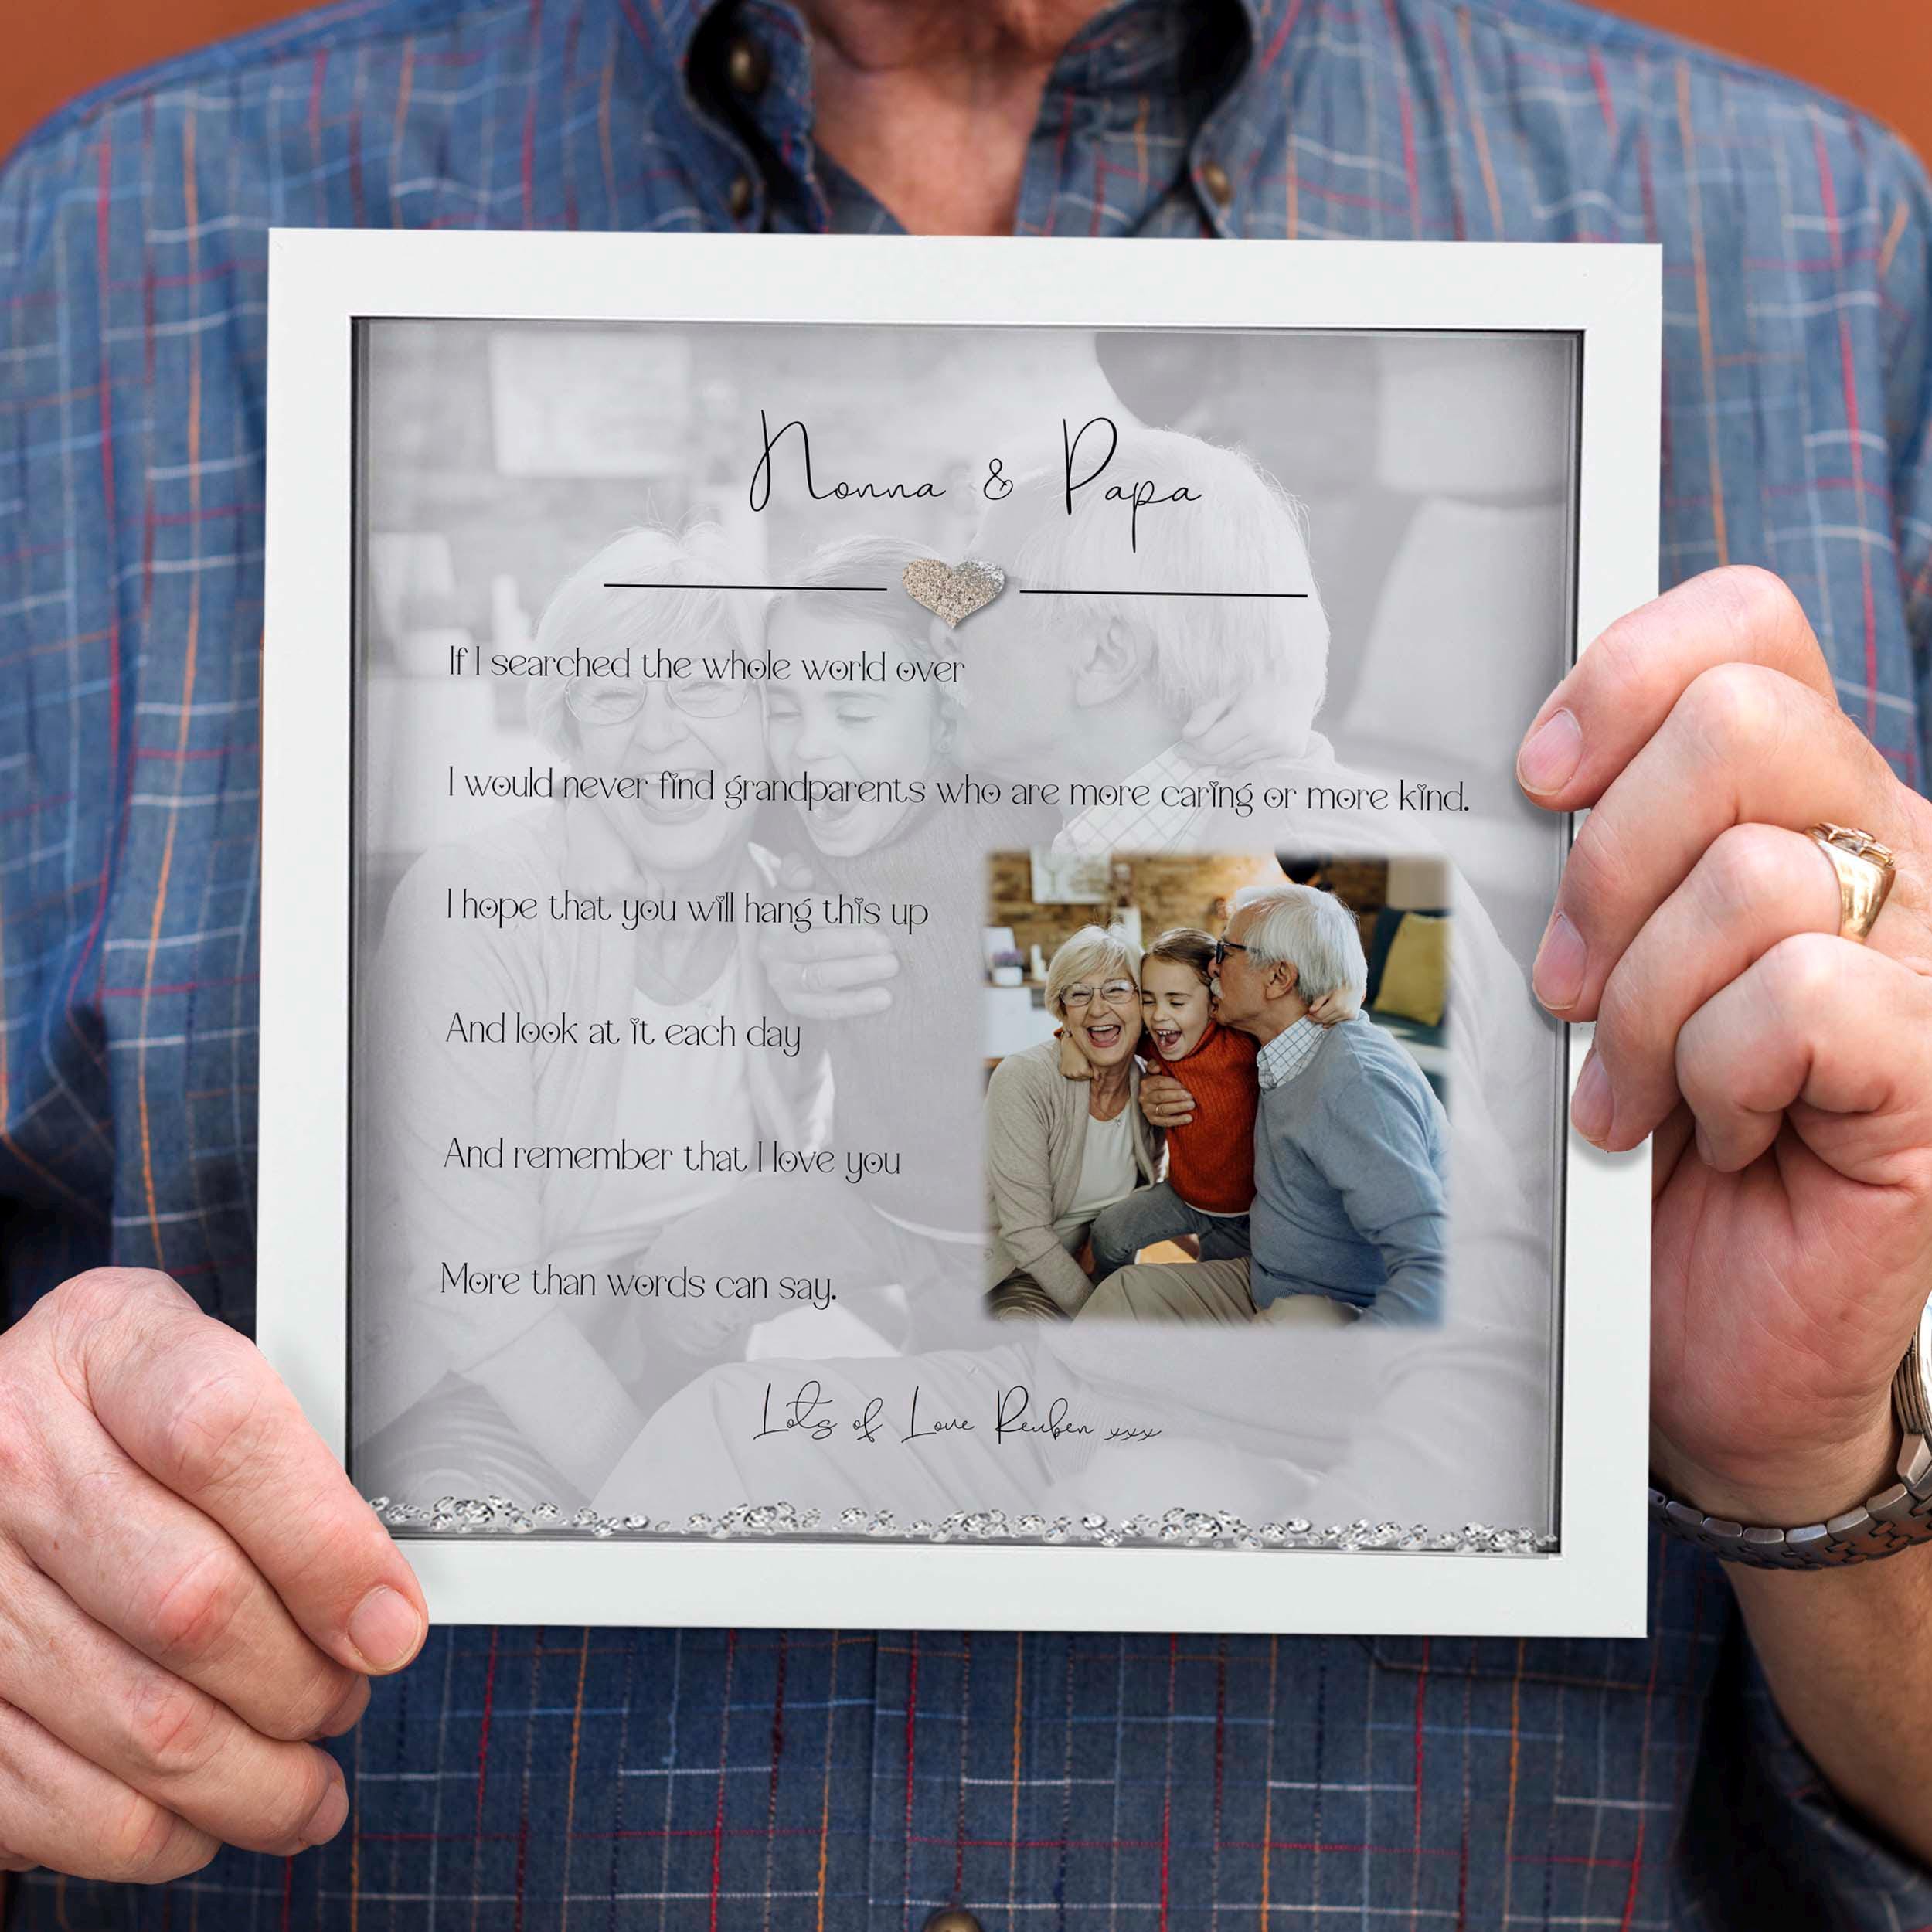 Nonna & Papa
If I searched the whole world over
I would never find grandparents who are more caring or more kind.
I hope that you will hang this up
And look at it each day
And remember that I love you
More than words can say.
Lots of Love Reuben xxx